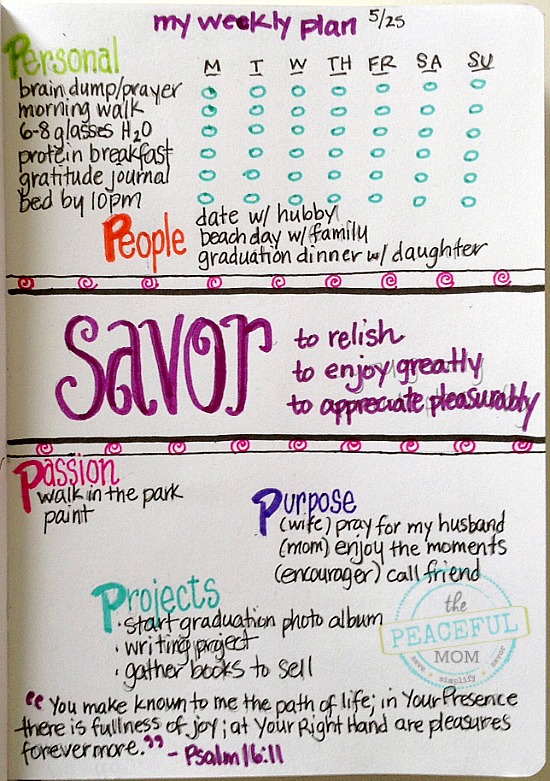 my weekly plan 5/25
Personal
M T W TH FR SA SU
brain dump/prayer
morning walk
6-8 glasses H2O
protein breakfast
gratitude journal
bed by 10pm
People
date w/ hubby
beach day w/ family
graduation dinner w/ daughter
savor
to relish
to enjoy greatly
to appreciate pleasurably
Passion
walk in the park
paint
Purpose
(wife) pray for my husband
(mom) enjoy the moments
(encourager) call friend
Projects
· start graduation photo album
· writing project
· gather books to sell
the
PEACEFUL
MOM
save · simplify · savor
"You make known to me the path of life; in Your Presence
there is fullness of joy; at Your Right Hand are pleasures
forevermore." - Psalm 16:11